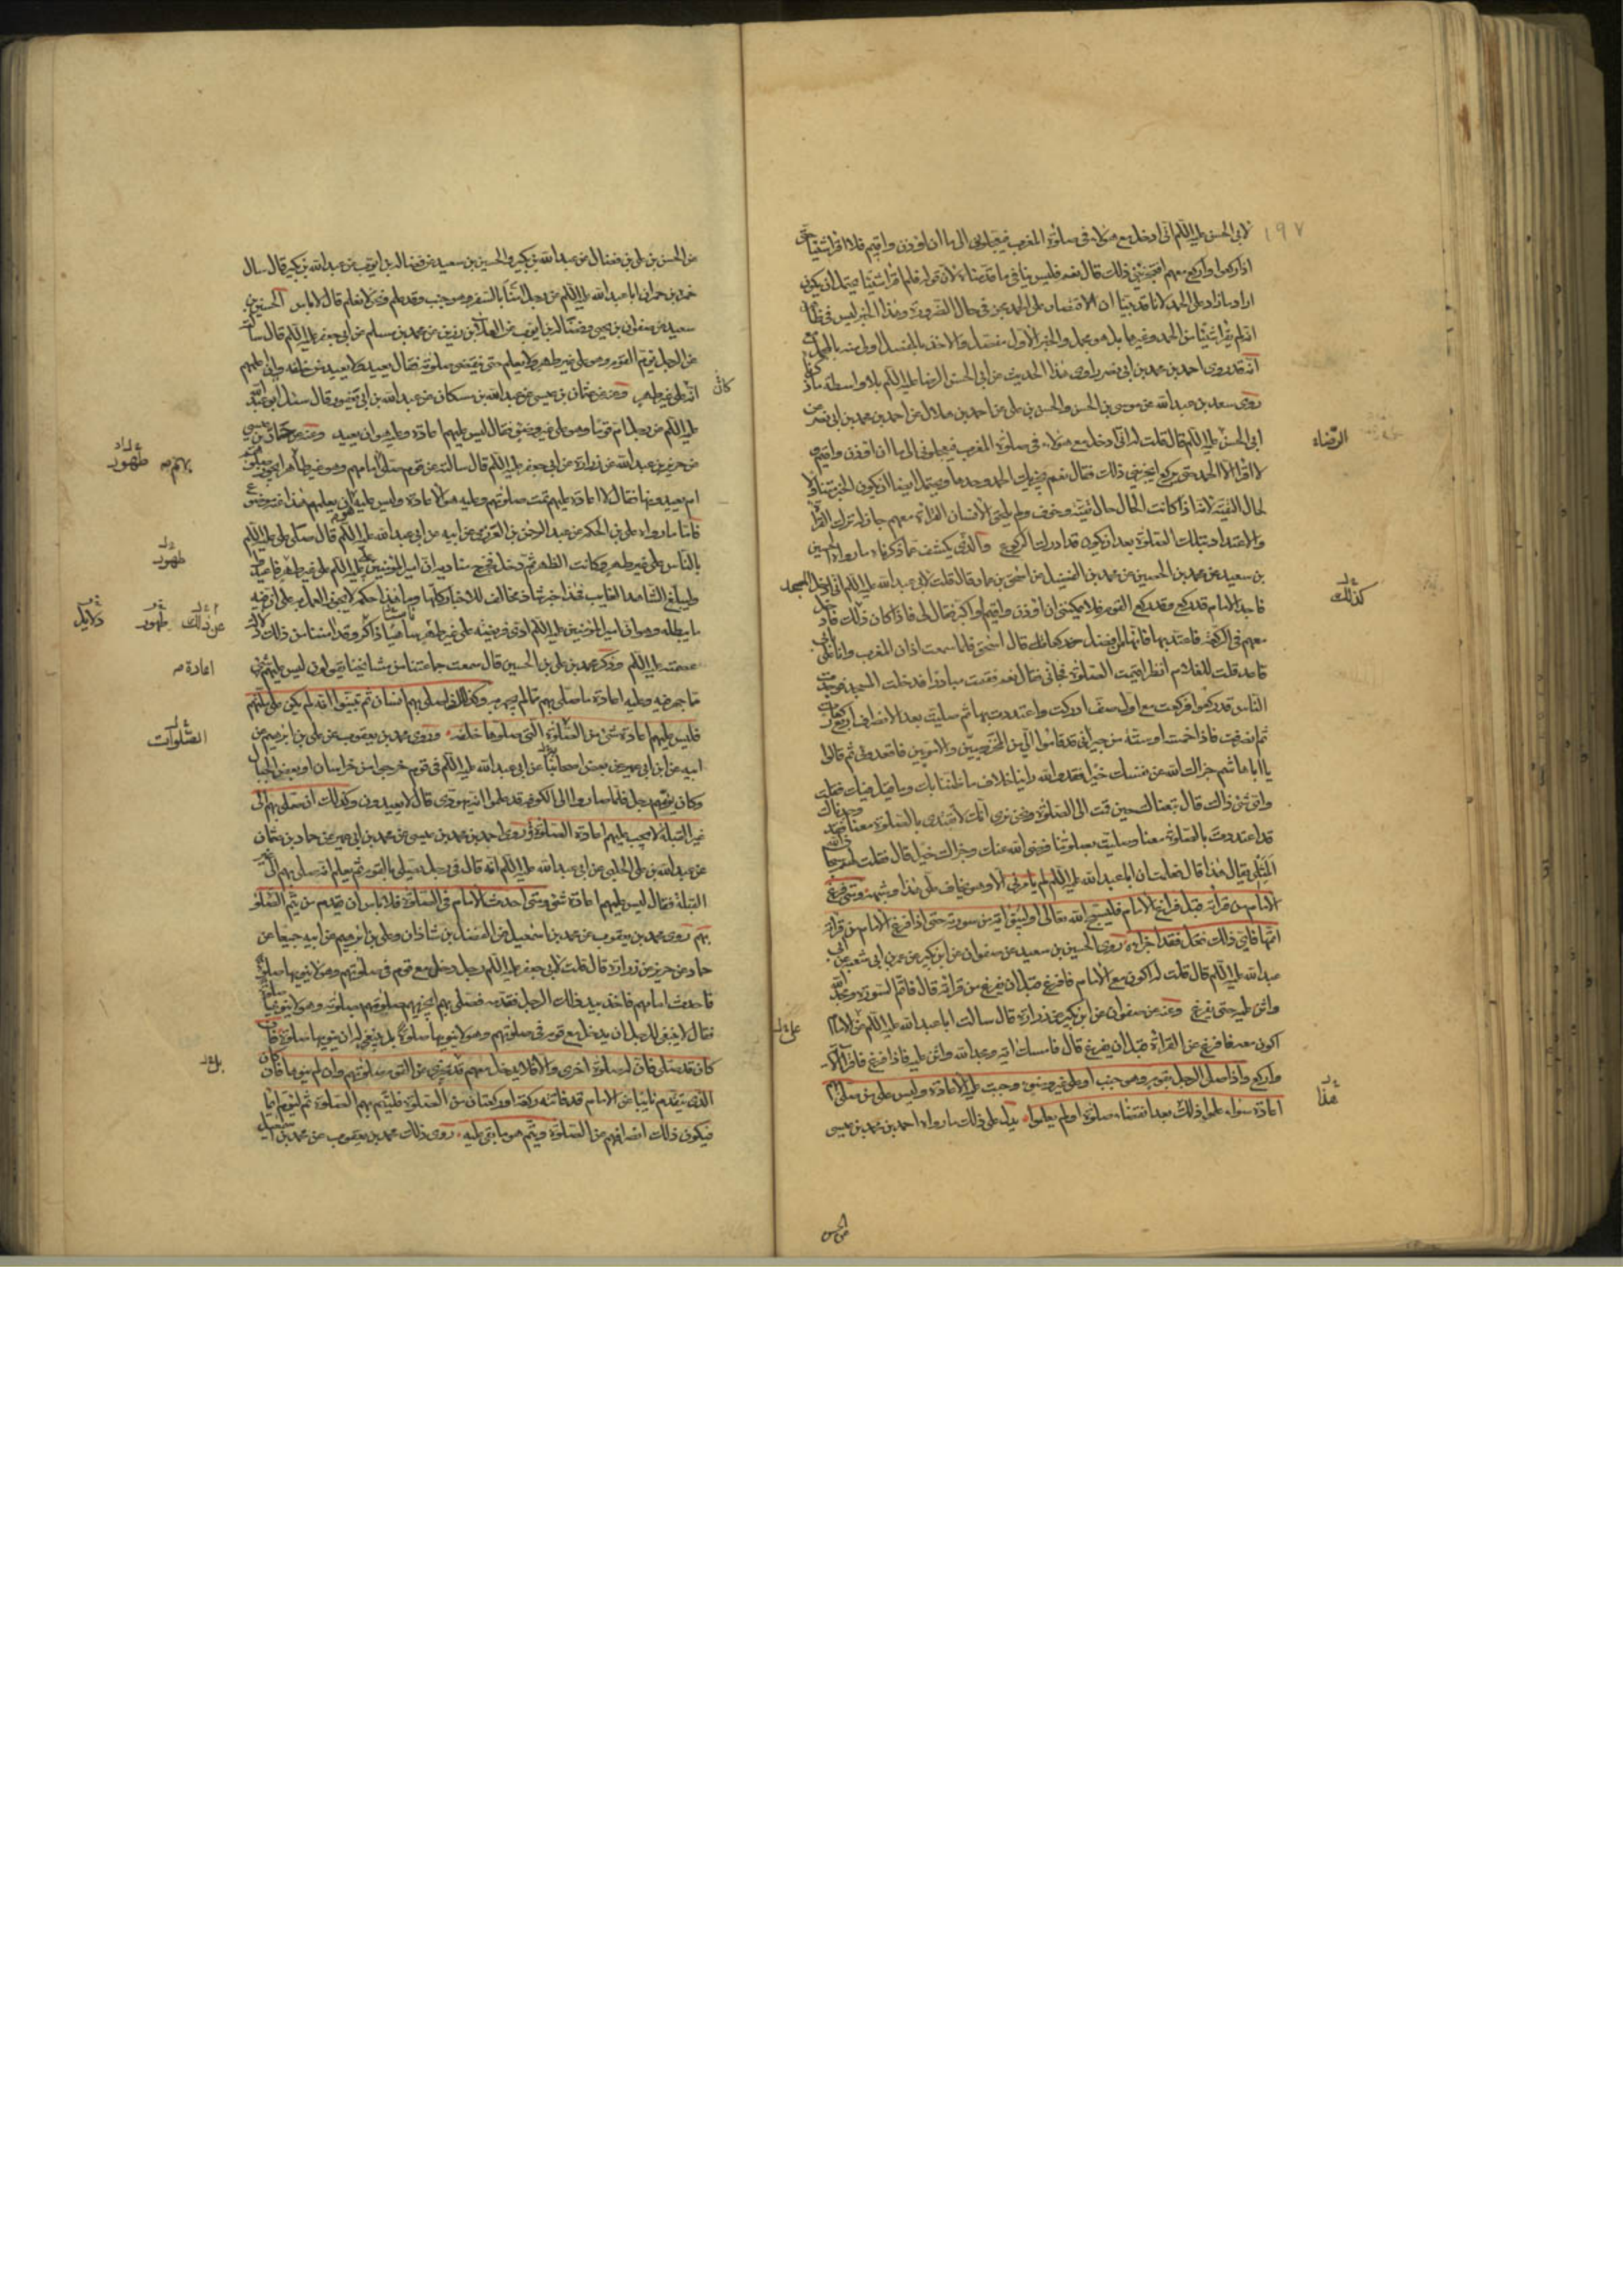 ١٩٧
لابي الحسن عليه السلام اني ادخل مع هؤلاء في صلوة المغرب فيعجلوني الى ما ان اؤذن واقيم فلا اقرأ شيئا حتى
اذا ركعوا واركع معهم افيجزيني ذلك قال نعم فليس ينافي ما قدمناه لان قوله فلم اقرأ شيئا يحتمل ان يكون
اراد ما زاد على الحمد لانا قد بينا ان الاقتصار على الحمد يجزي في حال الضرورة وهذا الخبر ليس في ظاهره
انه لم يقرأ شيئا من الحمد وغيرها بل هو مجمل والخبر الاول مفصل والاخذ بالمفصل اولى منه بالمجمل مع
انه قد روى احمد بن محمد بن ابي نصر راوي هذا الحديث عن ابي الحسن الرضا عليه السلام بلا واسطة ما ذكرناه
روى سعد بن عبدالله عن موسى بن الحسن والحسن بن علي عن احمد بن هلال عن احمد بن محمد بن ابي نصر عن
ابي الحسن عليه السلام قال قلت له اني ادخل مع هؤلاء في صلوة المغرب فيعجلوني الى ما ان اؤذن واقيم
الرضاء
لا اقرأ الا الحمد حتى يركع ايجزيني ذلك فقال نعم يجزيك الحمد وحدها ويحتمل ايضا ان يكون الخبر متناولا
لحال التقية لانه اذا كانت الحال حال تقية وخوف ولم يلحق الانسان القراءة معهم جاز له ترك القراءة
والاعتداد بتلك الصلوة بعد ان يكون قد ادرك الركوع والذي يكشف عما ذكرناه ما رواه الحسين
بن سعيد عن محمد بن الحسين عن محمد بن الفضيل عن اسحق بن عمار قال قلت لابي عبدالله عليه السلام اني ادخل المسجد
كذلك
فاجد الامام قد ركع وقد ركع القوم فلا يمكنني ان اؤذن واقيم او اكبر فقال لي فاذا كان ذلك فادخل
معهم في الركعة فاعتد بها فانها من افضل ركعاتك قال اسحق فلما سمعت اذان المغرب وانا على بابي
قاعد قلت للغلام انظر اقيمت الصلوة فجاءني فقال نعم فقمت مبادرا فدخلت المسجد فوجدت
الناس قد ركعوا فركعت مع اول صف ادركت واعتددت بها ثم صليت بعد الانصراف اربع ركعات
ثم انصرفت فاذا خمسة او ستة من جيراني قد قاموا الي من المخزوميين والامويين فاقعدوني ثم قالوا
يا ابا هاشم جزاك الله عن نفسك خيرا فقد والله راينا خلاف ما ظننا بك وما قيل فيك فقلت
واي شيء ذاك قال تبعناك حين قمت الى الصلوة ونحن نرى انك لا تقتدي بالصلوة معنا فقد وجدناك
قد اعتددت بالصلوة معنا وصليت بصلوتنا فرضي الله عنك وجزاك خيرا قال فقلت لهم سبحان الله
المثلي يقال هذا قال فعلمت ان ابا عبدالله عليه السلام لم يامرني الا وهو يخاف علي هذا وشبهه ومتى فرغ
الامام من قراءته قبل فراغ الامام فليسبح الله تعالى او ليبق اية من سورته حتى اذا فرغ الامام من قراءته
اتمها فان ذلك فعل فقد اجزاه روى الحسين بن سعيد عن صفوان عن ابن بكير عن عمر بن ابي شعبه عن ابي
عبدالله عليه السلام قال قلت له اكون مع الامام فافرغ قبل ان يفرغ من قراءته قال فاتم السورة ومجد الله
واثن عليه حتى يفرغ وعنه عن صفوان عن ابن بكير عن زرارة قال سالت ابا عبدالله عليه السلام عن الامام
اكون معه فافرغ عن القراءة قبل ان يفرغ قال فامسك اية ومجد الله واثن عليه فاذا فرغ فاقرا الاية
واركع واذا صلى الرجل بقوم وهو جنب او على غير وضوء وجبت عليه الاعادة وليس على من صلى
هذا
اعادة سواء علموا ذلك بعد انقضاء صلوته او لم يعلموا يدل على ذلك ما رواه احمد بن محمد بن عيسى
عن الحسن
عن الحسن بن علي بن فضال عن عبدالله بن بكير والحسين بن سعيد عن فضالة بن ايوب عن عبدالله بن بكير قال سال
حمزة بن حمران ابا عبدالله عليه السلام عن رجل امنا بالسفر وهو جنب وقد علم ونحن لا نعلم قال لا باس الحسين بن
سعيد عن صفوان بن يحيى وفضالة بن ايوب عن العلاء بن رزين عن محمد بن مسلم عن ابي جعفر عليه السلام قال سالته
عن الرجل يؤم القوم وهو على غير طهر ولا يعلم حتى تنقضي صلوته فقال يعيد ولا يعيد من خلفه وان اعلمهم
كان
انه على غير طهر وعنه عن عثمان بن عيسى عن عبدالله بن مسكان عن عبدالله بن ابي يعفور قال سئل ابو عبدالله
عليه السلام عن رجل ام قوما وهو على غير وضوء فقال ليس عليهم اعادة وعليه هو ان يعيد وعنه عن حماد بن عيسى
عن حريز بن عبدالله عن زرارة عن ابي جعفر عليه السلام قال سالته عن قوم صلى بهم امامهم وهو غير طاهر ايجوز صلوتهم
بهم طهور
ام يعيدونها فقال لا اعادة عليهم تمت صلوتهم وعليه هو الاعادة وليس عليه ان يعلمهم هذا عنه موضوع
فاما ما رواه علي بن الحكم عن عبد الرحمن العزرمي عن ابيه عن ابي عبدالله عليه السلام قال صلى علي عليه السلام
بالناس على غير طهر وكانت الظهر ثم دخل فخرج مناديه ان امير المؤمنين عليه السلام صلى على غير طهر فاعيدوا
طهور
وليبلغ الشاهد الغايب فهذا خبر شاذ مخالف للاخبار كلها وما هذا حكمه لا يجوز العمل به على ان فيه
ما يبطله وهو ان امير المؤمنين عليه السلام ادى فريضته على غير طهر ساهيا غير ذاكر وقد امننا من ذلك دلالة
عن ذلك طهور دلايل
عصمته عليه السلام وذكر محمد بن علي بن الحسين قال سمعت جماعة من مشايخنا يقولون ليس عليهم في
اعادة
ما جهر فيه وعليه اعادة ما صلى بهم مما لم يجهر فيه وكذلك اذا صلى بهم انسان ثم تبينوا انه لم يكن على ملتهم
فليس عليهم اعادة شيء من الصلوة التي صلوها خلفه وروى محمد بن يعقوب عن علي بن ابراهيم عن
الصلوات
ابيه عن ابن ابي عمير عن بعض اصحابنا عن ابي عبدالله عليه السلام في قوم خرجوا من خراسان او بعض الجبال
وكان يؤمهم رجل فلما صاروا الى الكوفة علموا انه يهودي قال لا يعيدون وكذلك ان صلى بهم الى
غير القبلة لا يجب عليهم اعادة الصلوة روى احمد بن محمد بن عيسى عن محمد بن ابي عمير عن حماد بن عثمان
عن عبيدالله بن علي الحلبي عن ابي عبدالله عليه السلام انه قال في رجل يصلي بالقوم ثم يعلم انه صلى بهم الى غير
القبلة فقال ليس عليهم اعادة شيء ومتى احدث الامام في الصلوة فلا باس ان يقدم من يتم الصلوة
بهم روى محمد بن يعقوب عن محمد بن اسمعيل عن الفضل بن شاذان وعلي بن ابراهيم عن ابيه جميعا عن
حماد عن حريز عن زرارة قال قلت لابي جعفر عليه السلام رجل دخل مع قوم في صلوتهم وهو لا ينويها صلوة
فاحدث امامهم فاخذ بيد ذلك الرجل فقدمه فصلى بهم ايجزيهم صلوتهم بصلوته وهو لا ينويها صلوة
فقال لا ينبغي للرجل ان يدخل مع قوم في صلوتهم وهو لا ينويها صلوة بل ينبغي له ان ينويها صلوة فان
كان قد صلى فان له صلوة اخرى والا فلا يدخل معهم قد يجزي عن القوم صلوتهم وان لم ينوها فان كان
الذي يتقدم نايبا عن الامام قد فاتته ركعة او ركعتان من الصلوة فليتم بهم الصلوة ثم ليؤم ايماء
فيكون ذلك انصرافهم من الصلوة ويتم هو ما بقي عليه روى ذلك محمد بن يعقوب عن محمد بن اسمعيل